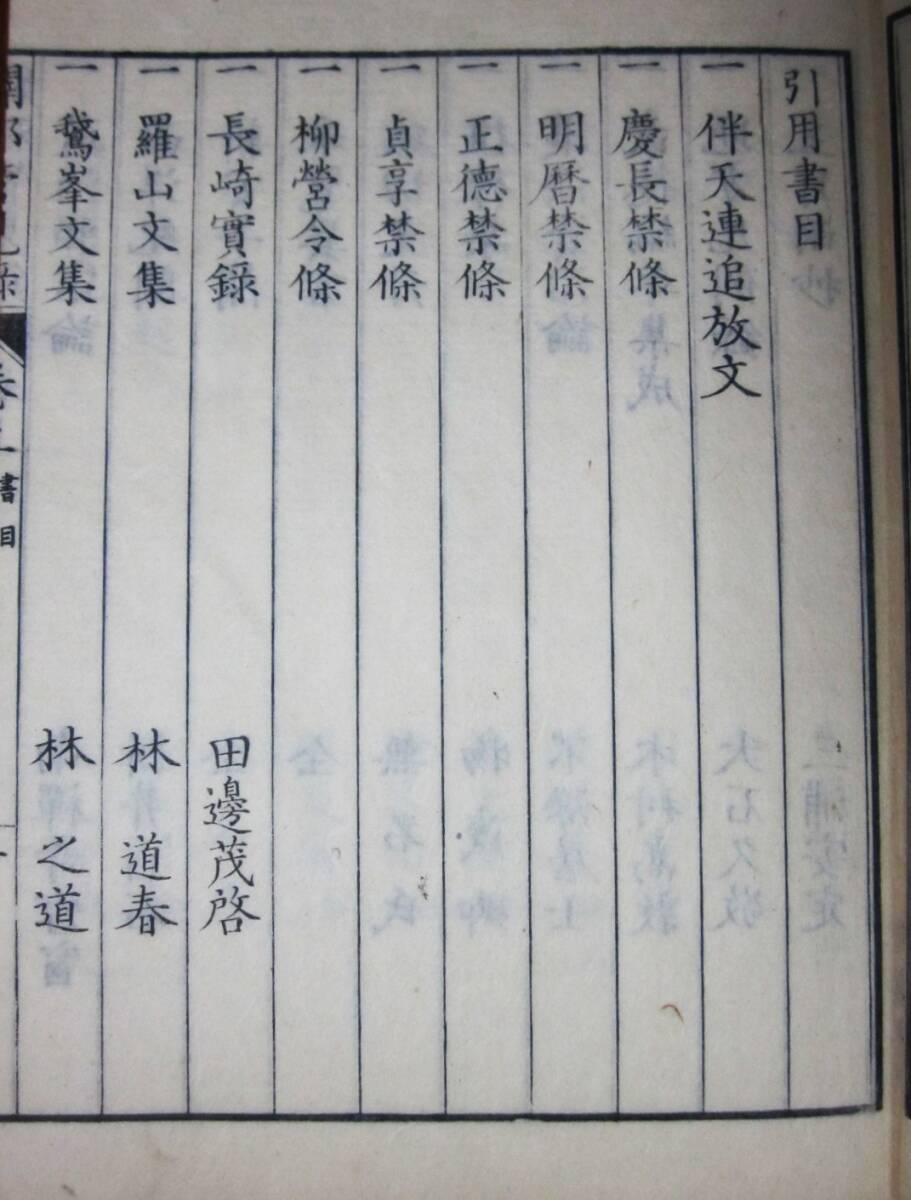 引用書目
一 伴天連追放文
一 慶長禁條
一 明曆禁條
一 正德禁條
一 貞享禁條
一 柳營令條
一 長崎實錄 田邊茂啓
一 羅山文集 林道春
一 鵞峯文集 林之道
書目